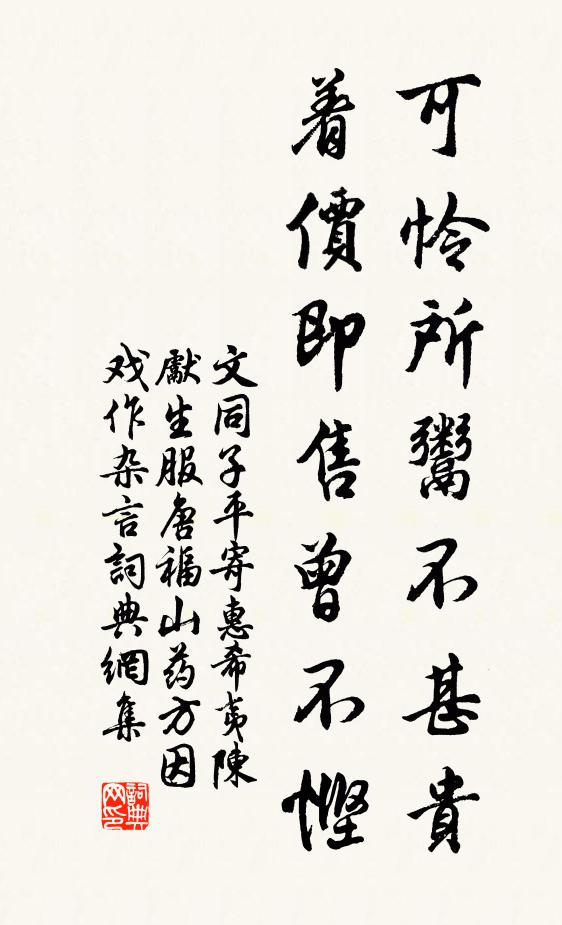 可怜所鬻不甚貴
着價即售曾不慳
文同子平寄惠希夷陳
獻生服唐福山药方因
戏作杂言詞典網集
詞典
网印